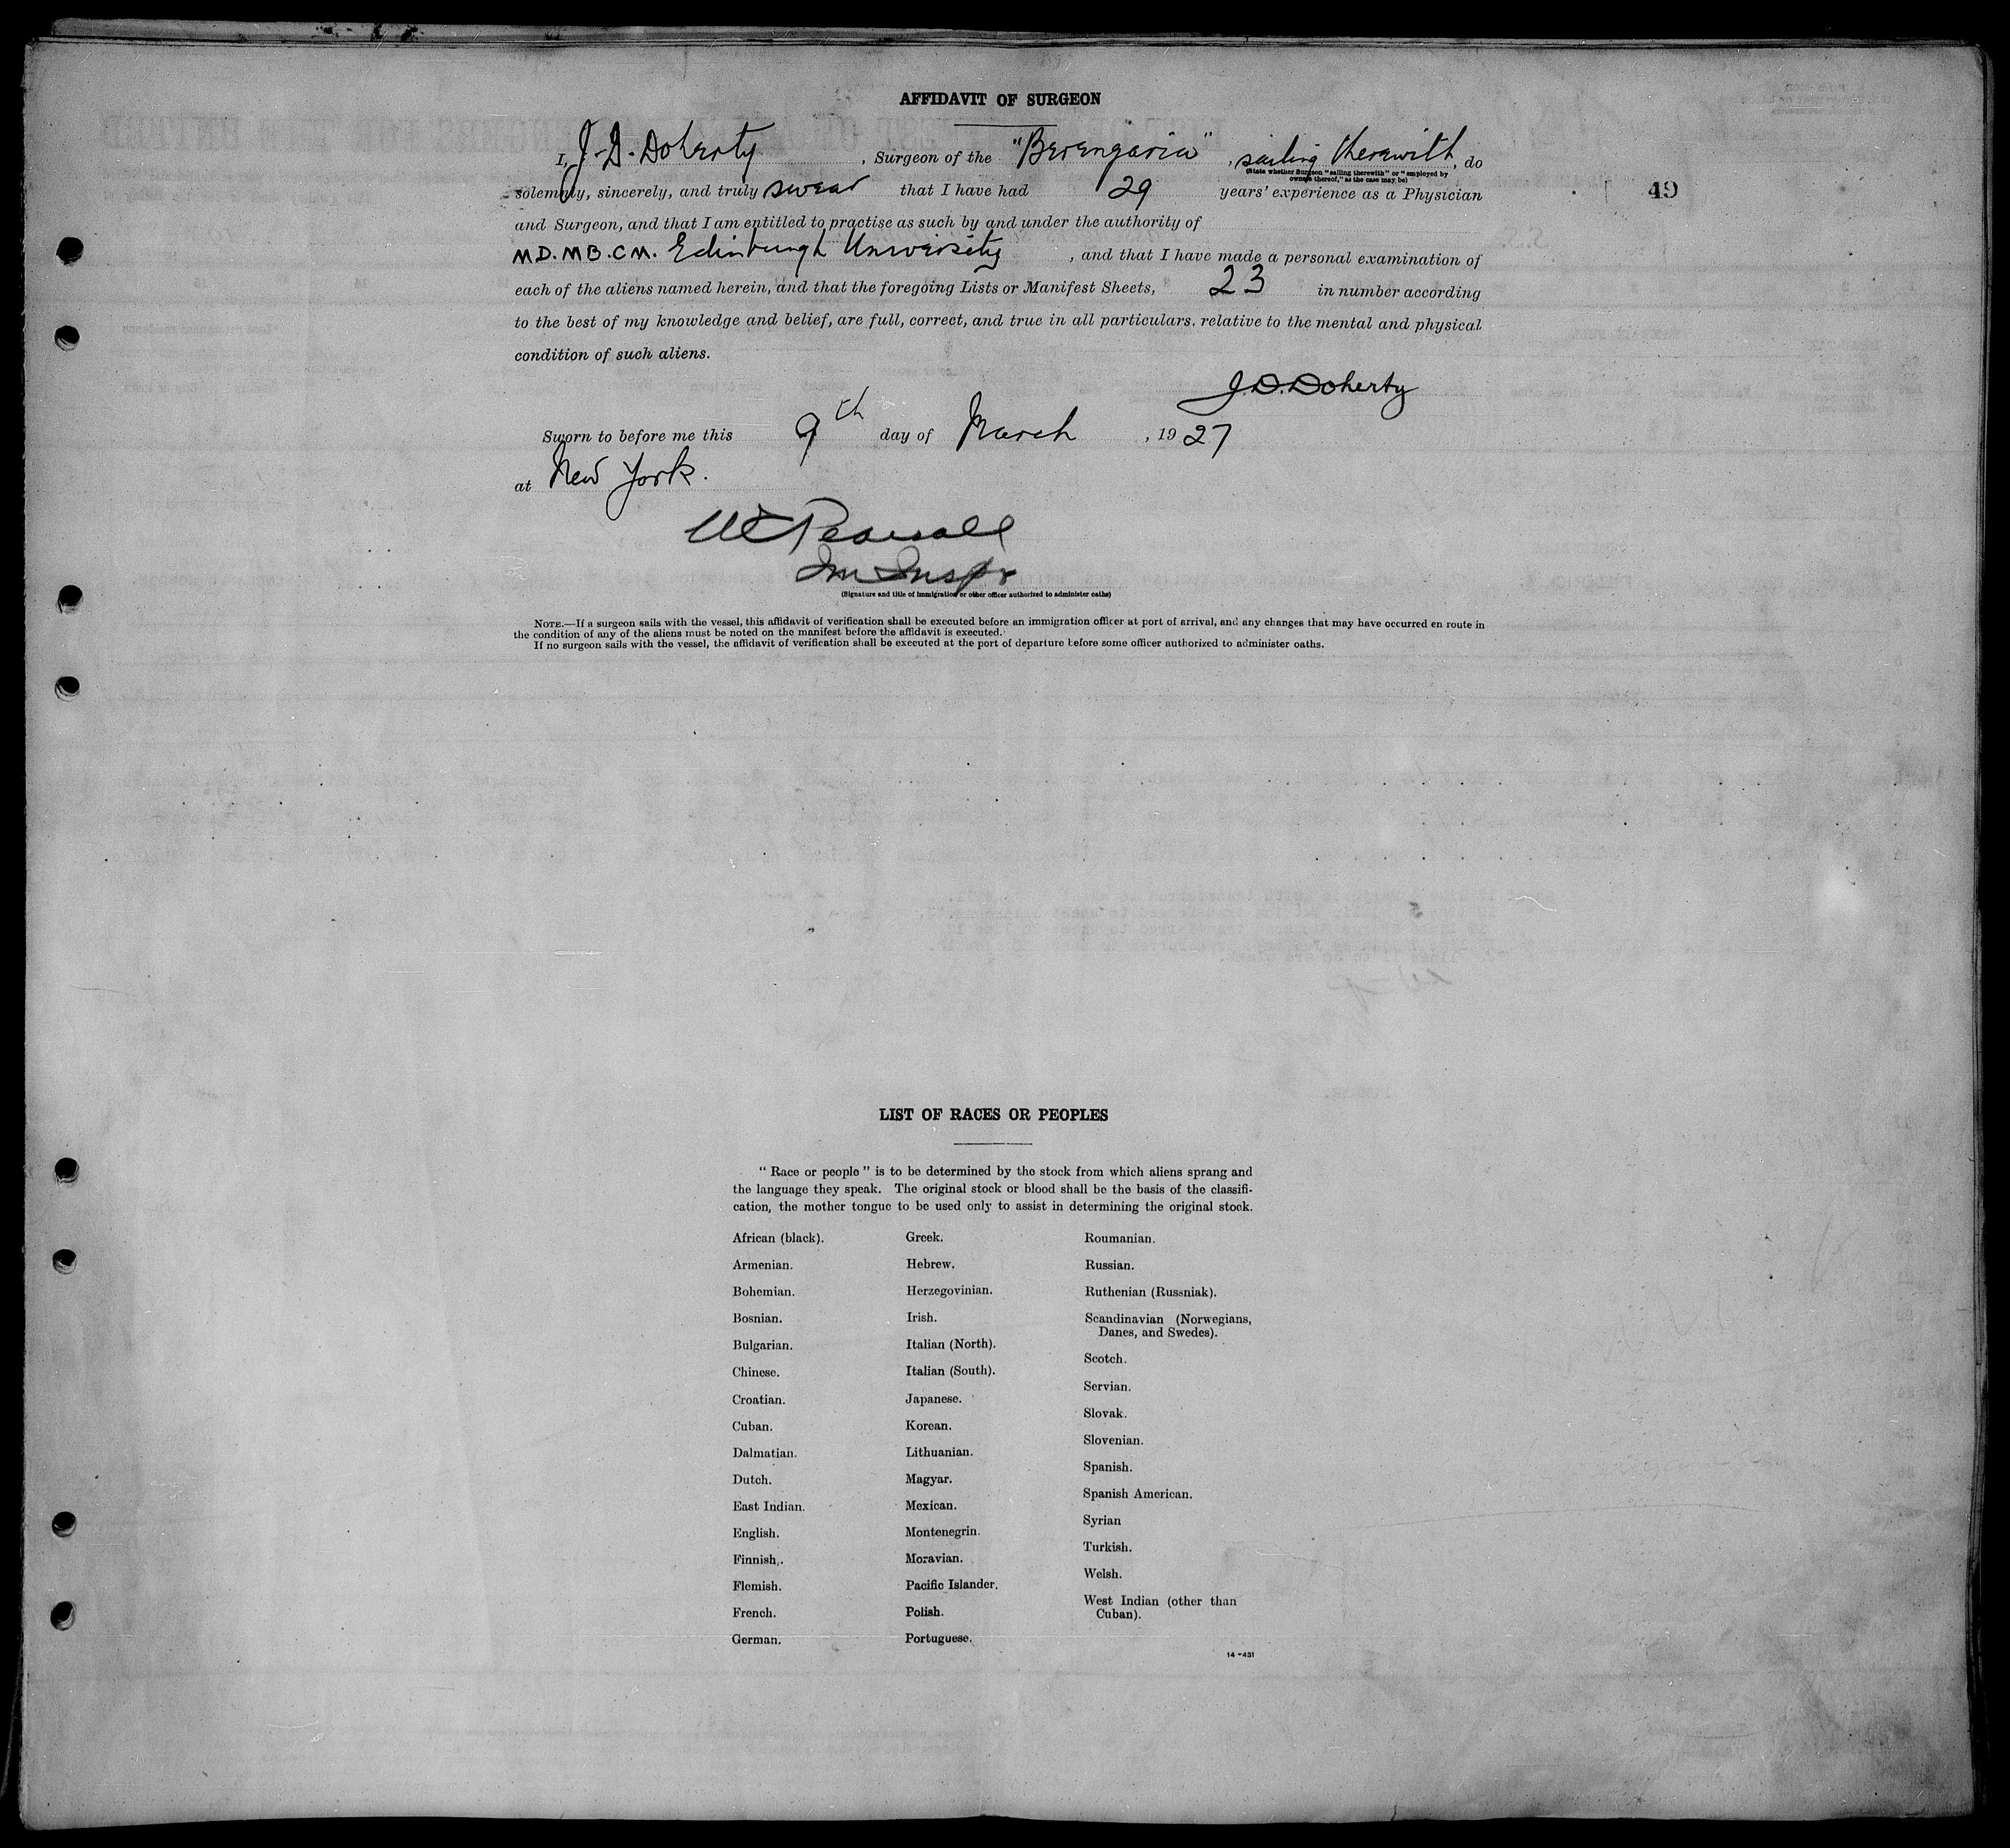 AFFIDAVIT OF SURGEON
I, J. D. Doherty, Surgeon of the "Berengaria", sailing therewith, do
(State whether Surgeon "sailing therewith" or "employed by
owners thereof," as the case may be)
solemnly, sincerely, and truly swear that I have had 29 years' experience as a Physician
49
and Surgeon, and that I am entitled to practise as such by and under the authority of
MD. MB. CM. Edinburgh University, and that I have made a personal examination of
each of the aliens named herein, and that the foregoing Lists or Manifest Sheets, 23 in number according
to the best of my knowledge and belief, are full, correct, and true in all particulars. relative to the mental and physical
condition of such aliens.
J. D. Doherty
Sworn to before me this 9th day of March, 1927
at New York.
Pearsall
Im Inspr
(Signature and title of immigration or other officer authorized to administer oaths)
NOTE.—If a surgeon sails with the vessel, this affidavit of verification shall be executed before an immigration officer at port of arrival, and any changes that may have occurred en route in
the condition of any of the aliens must be noted on the manifest before the affidavit is executed.
If no surgeon sails with the vessel, the affidavit of verification shall be executed at the port of departure before some officer authorized to administer oaths.
LIST OF RACES OR PEOPLES
"Race or people" is to be determined by the stock from which aliens sprang and
the language they speak. The original stock or blood shall be the basis of the classifi-
cation, the mother tongue to be used only to assist in determining the original stock.
African (black).
Armenian.
Bohemian.
Bosnian.
Bulgarian.
Chinese.
Croatian.
Cuban.
Dalmatian.
Dutch.
East Indian.
English.
Finnish.
Flemish.
French.
German.
Greek.
Hebrew.
Herzegovinian.
Irish.
Italian (North).
Italian (South).
Japanese.
Korean.
Lithuanian.
Magyar.
Mexican.
Montenegrin.
Moravian.
Pacific Islander.
Polish.
Portuguese.
Roumanian.
Russian.
Ruthenian (Russniak).
Scandinavian (Norwegians,
Danes, and Swedes).
Scotch.
Servian.
Slovak.
Slovenian.
Spanish.
Spanish American.
Syrian
Turkish.
Welsh.
West Indian (other than
Cuban).
14-431